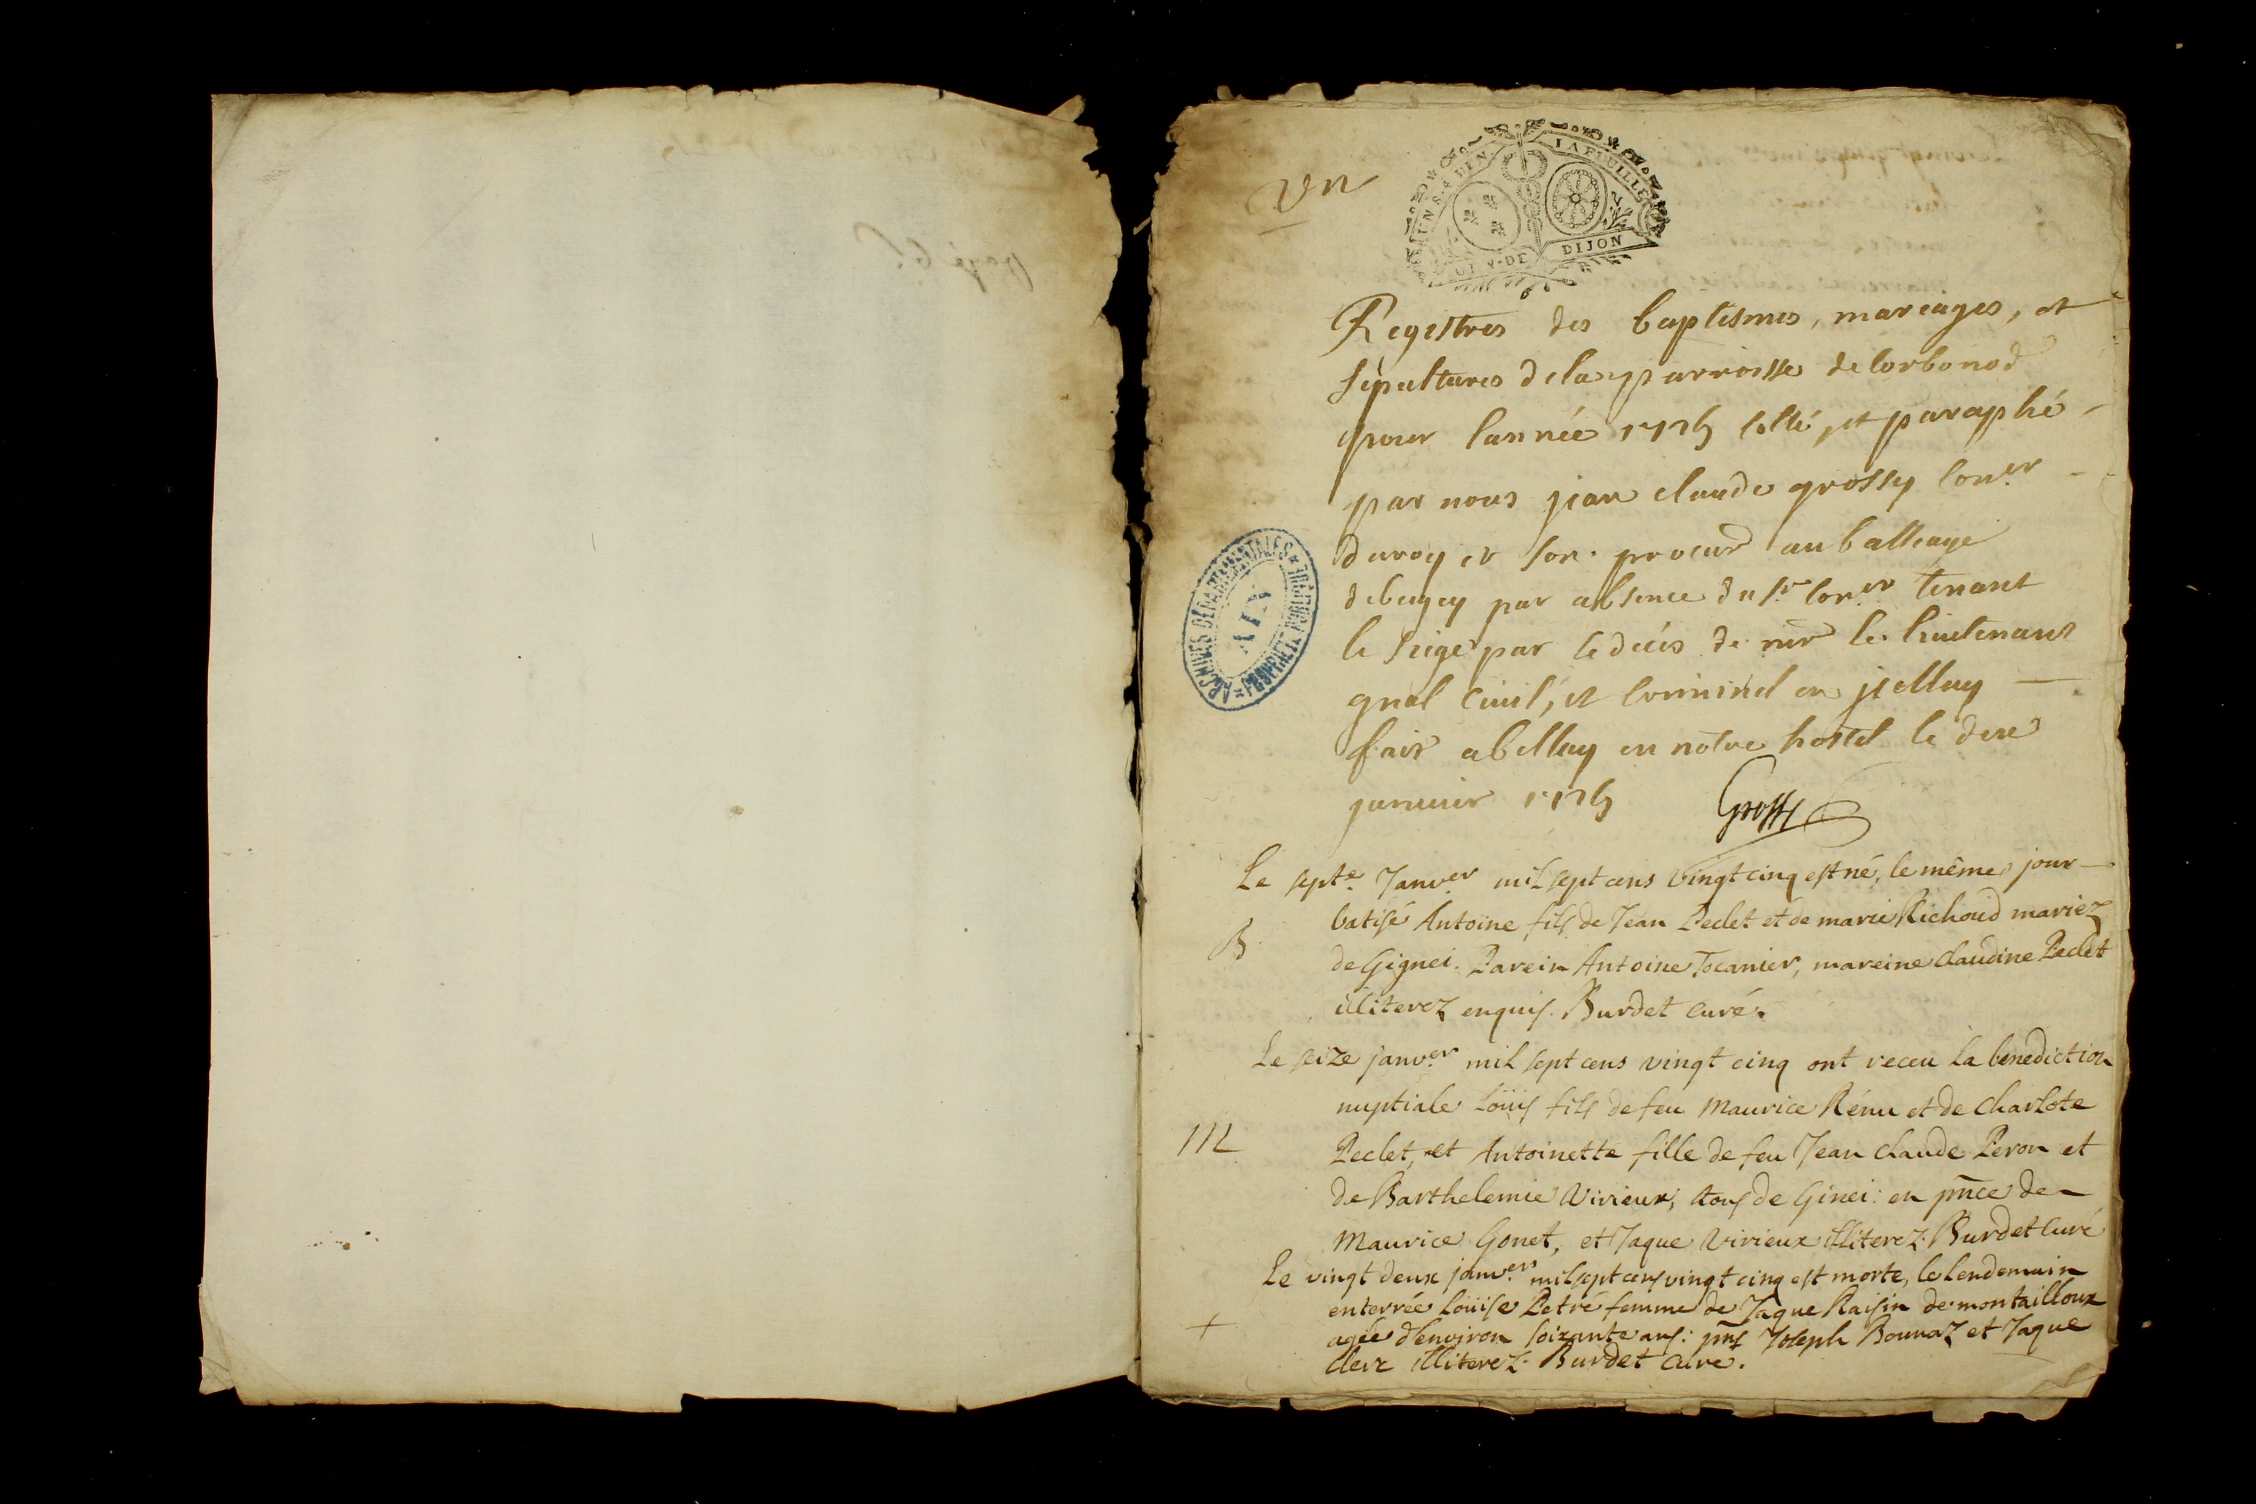 vn
UN S. 4 DEN. LA FEUILLE
DE DIJON
Registres des baptismes, mariages, et
sepultures dela parroisse de Corbonod
pour lannée 1725 cotté, et paraphé
par nous jean claude grossy Con.er
duroy et son procur au balliage
debugey par absence du Sr Con.er tenant
le siege par le décés de mr le lieutenant
gnal civil, et criminel en jcelluy
fait abelley en notre hostel le dixe
janvier 1725 Grossy
ARCHIVES DÉPARTEMENTALES
AIN
PROPRIÉTÉ PUBLIQUE
Le septe. Janv.er mil sept cens vingt cinq est né, le même jour
batisé Antoine fils de Jean Peclet et de marie Richoud mariez
B
de Gignei. Parein Antoine Tocanier, mareine claudine Peclet
illiterez enquis. Burdet curé.
Le seize janv.er mil sept cens vingt cinq ont receu la benediction
nuptiale Loüis fils de feu Maurice Rénu et de Charlote
M
Peclet, et Antoinette fille de feu Jean Claude Peron et
de Barthelemie Vivieux, tous de Ginei: en pñce de
Maurice Gonet, et Jaque Vivieux illiterez. Burdet Curé
Le vingt deux janv.er mil sept cens vingt cinq est morte, le lendemain
enterrée Loüise Petré femme de Jaque Raisin de montailloux
+
agée d'environ soixante ans: pñs Joseph Bonnaz et Jaque
Clerc illiterez. Burdet Curé.